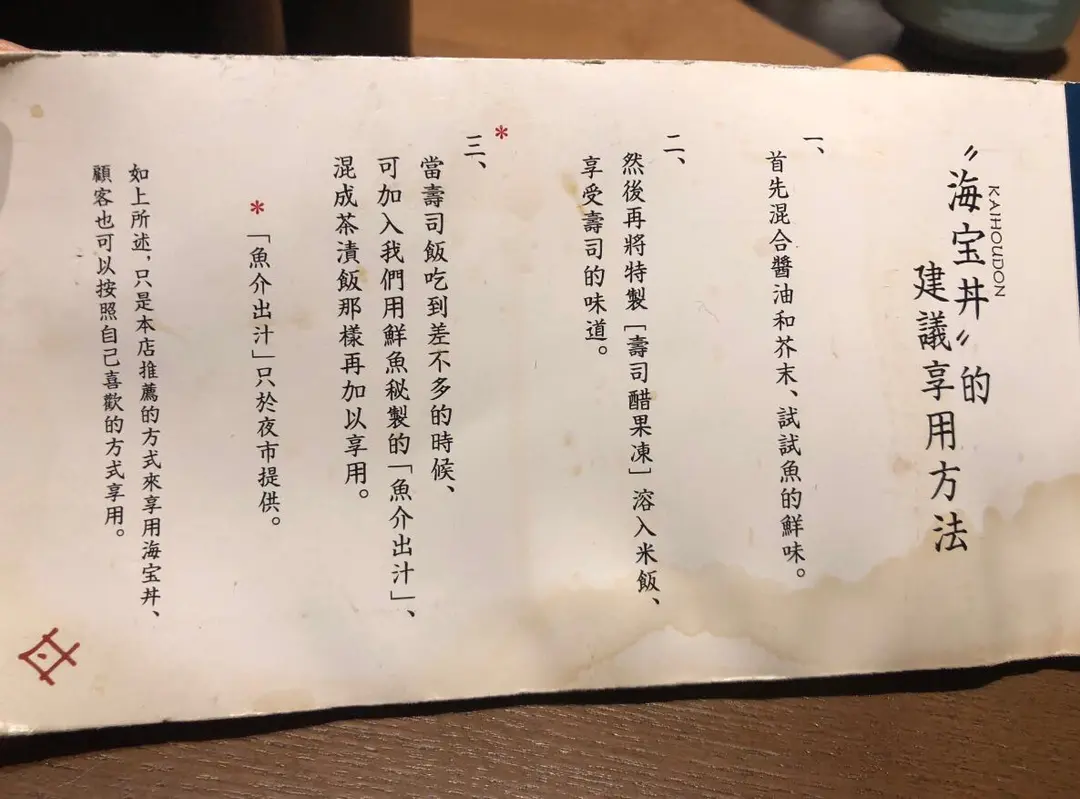 KAIHOUDON
〝海宝丼〟的
建議享用方法
一、
首先混合醬油和芥末、試試魚的鮮味。
二、
然後再將特製［壽司醋果凍］溶入米飯、
享受壽司的味道。
*
三、
當壽司飯吃到差不多的時候、
可加入我們用鮮魚秘製的「魚介出汁」、
混成茶漬飯那樣再加以享用。
*「魚介出汁」只於夜市提供。
如上所述,只是本店推薦的方式來享用海宝丼、
顧客也可以按照自己喜歡的方式享用。